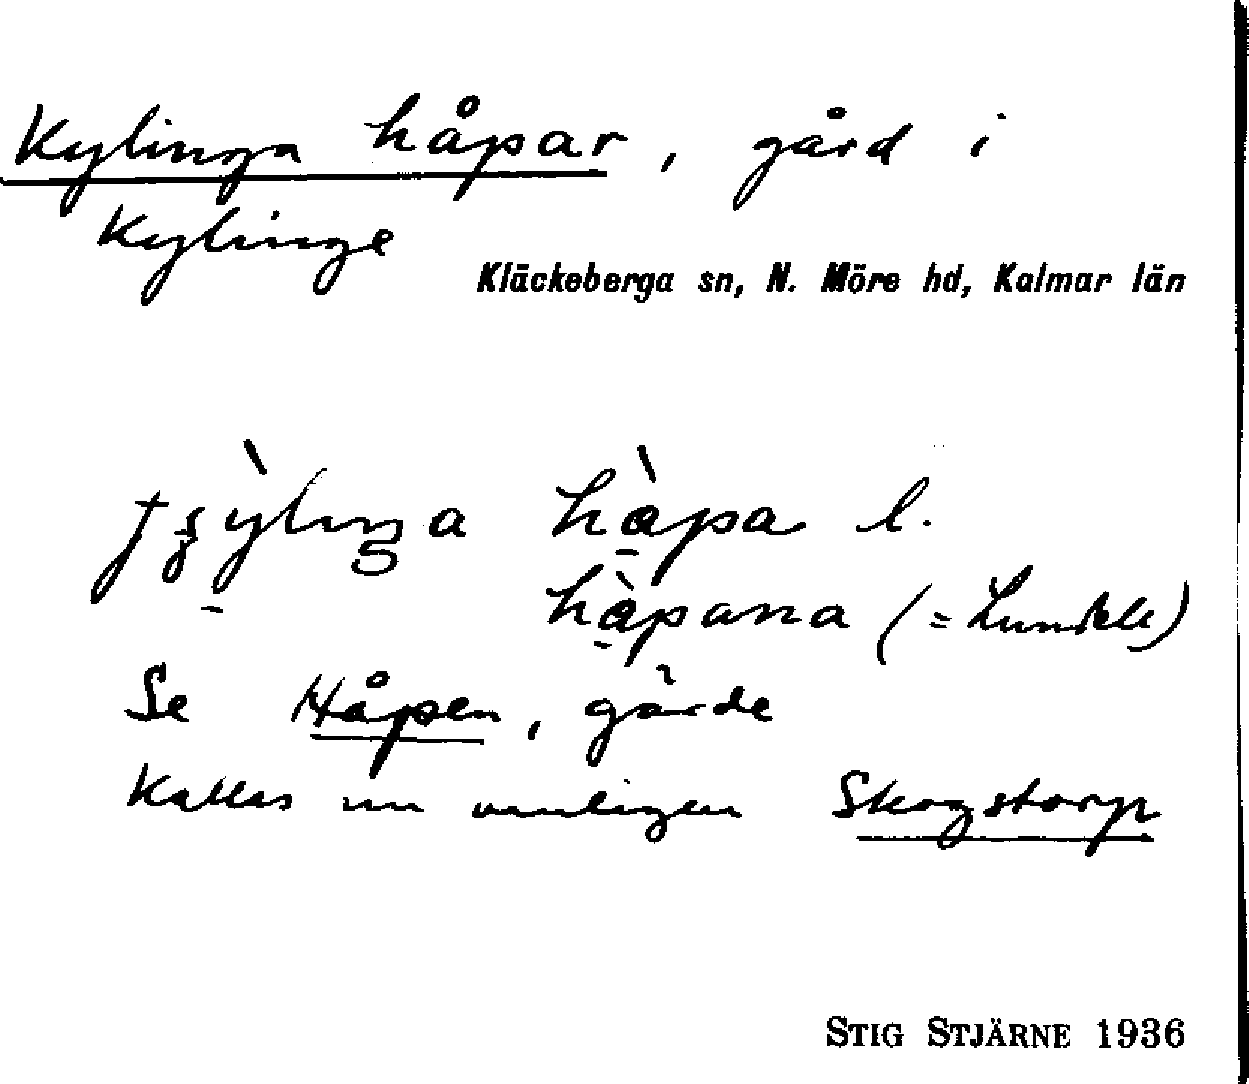 Kylinga håpar, gård i
Kylinge
Kläckeberga sn, N. Möre hd, Kalmar län
hàpa l.
hàpana (= Lundell)
Se Håpen, gärde
Kallas nu vanligen Skogstorp
STIG STJÄRNE 1936